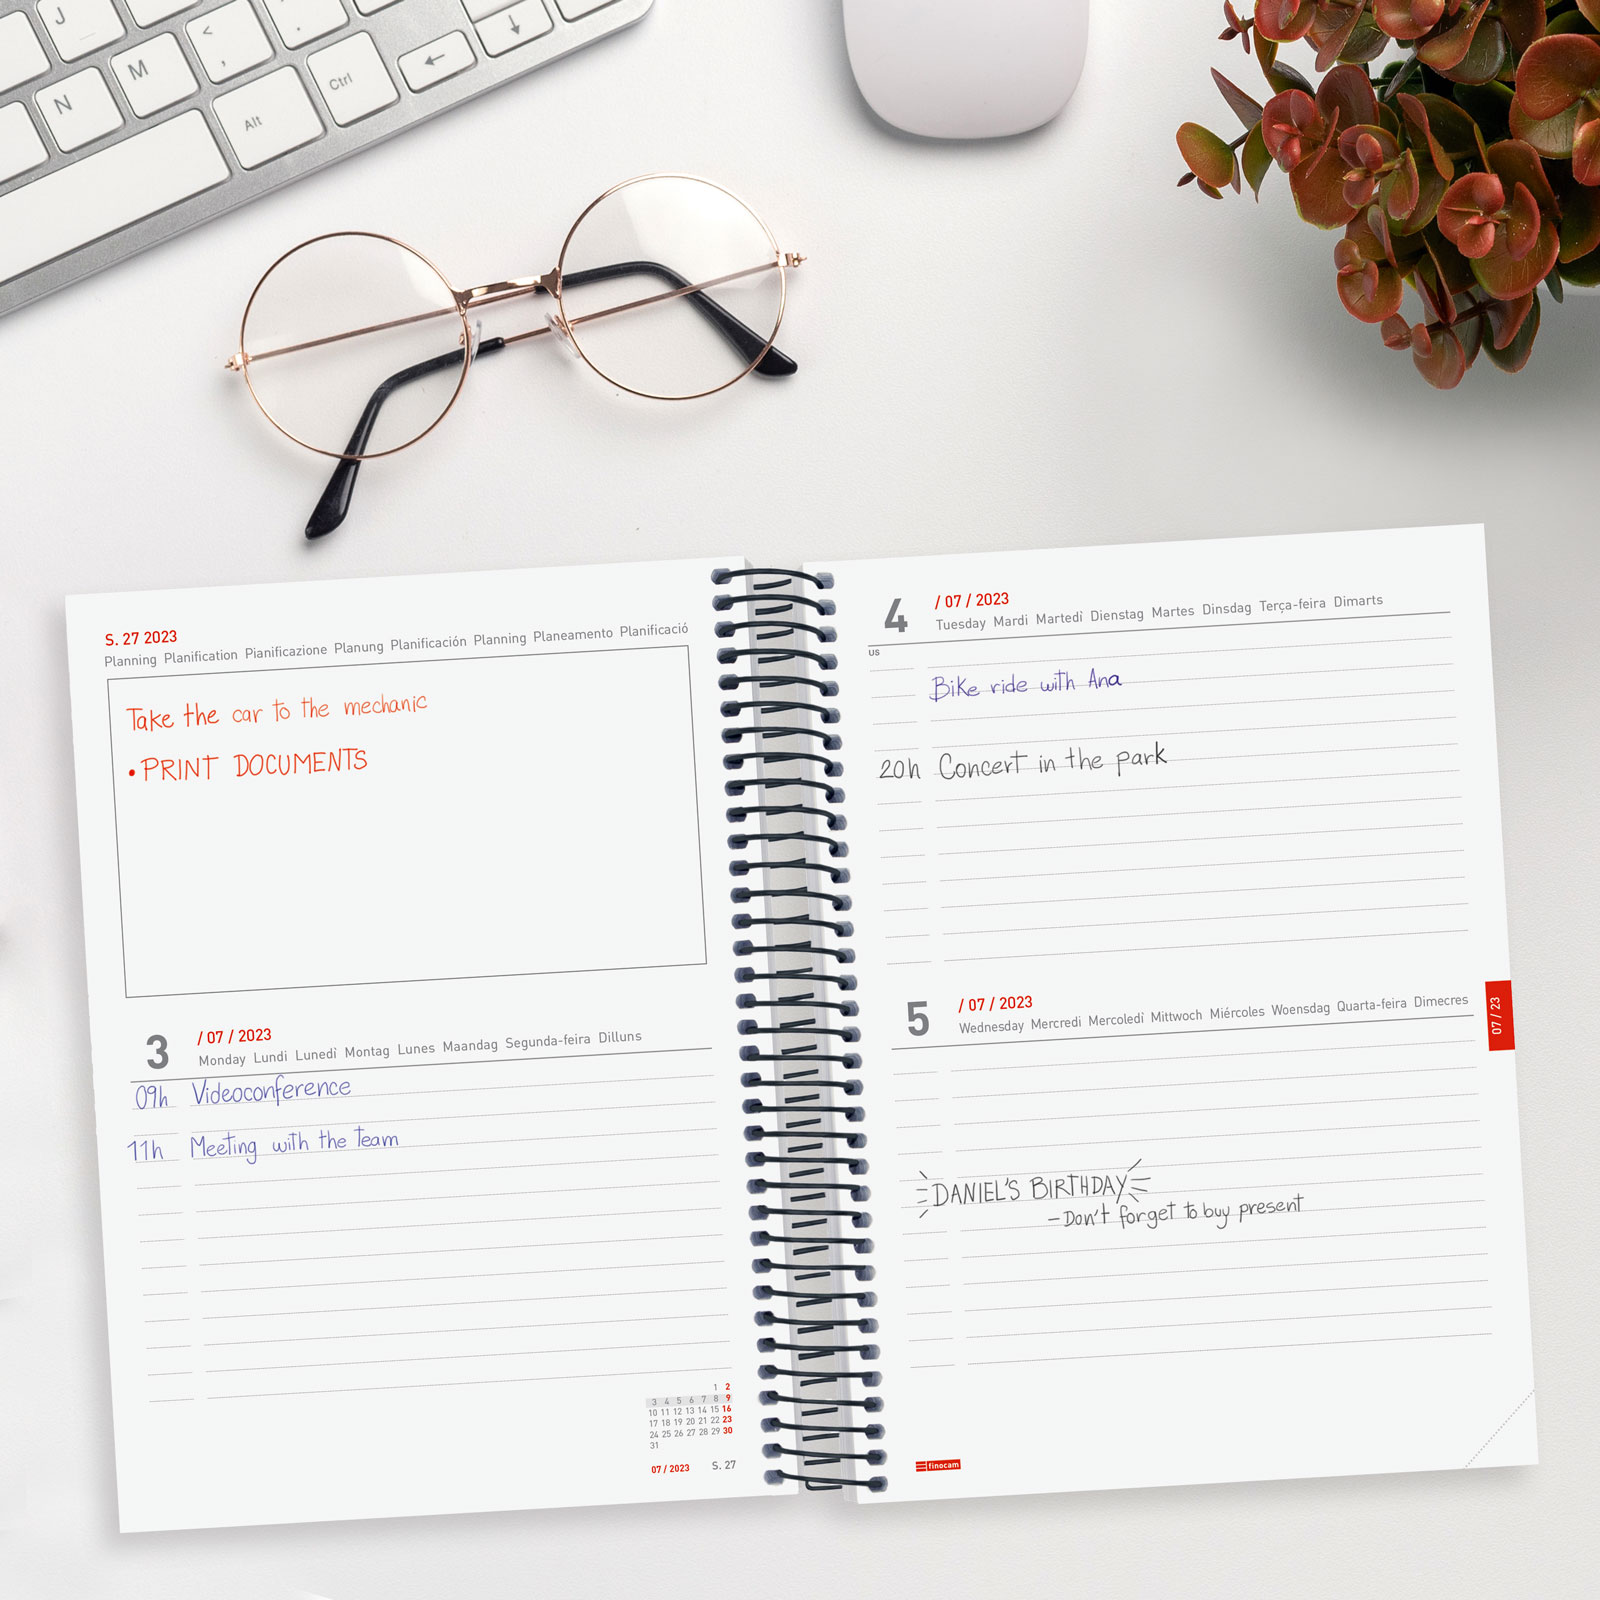 J
<
,
.
N
M
Alt
Ctrl
←
↓
S. 27 2023
Planning Planification Pianificazione Planung Planificación Planning Planeamento Planificació
Take the car to the mechanic
• PRINT DOCUMENTS
3 / 07 / 2023
Monday Lundi Lunedì Montag Lunes Maandag Segunda-feira Dilluns
09h Videoconference
11h Meeting with the team
1 2
3 4 5 6 7 8 9
10 11 12 13 14 15 16
17 18 19 20 21 22 23
24 25 26 27 28 29 30
31
07 / 2023 S. 27
4 / 07 / 2023
Tuesday Mardi Martedì Dienstag Martes Dinsdag Terça-feira Dimarts
US
Bike ride with Ana
20h Concert in the park
5 / 07 / 2023
Wednesday Mercredi Mercoledì Mittwoch Miércoles Woensdag Quarta-feira Dimecres
07 / 23
DANIEL'S BIRTHDAY
- Don't forget to buy present
finocam